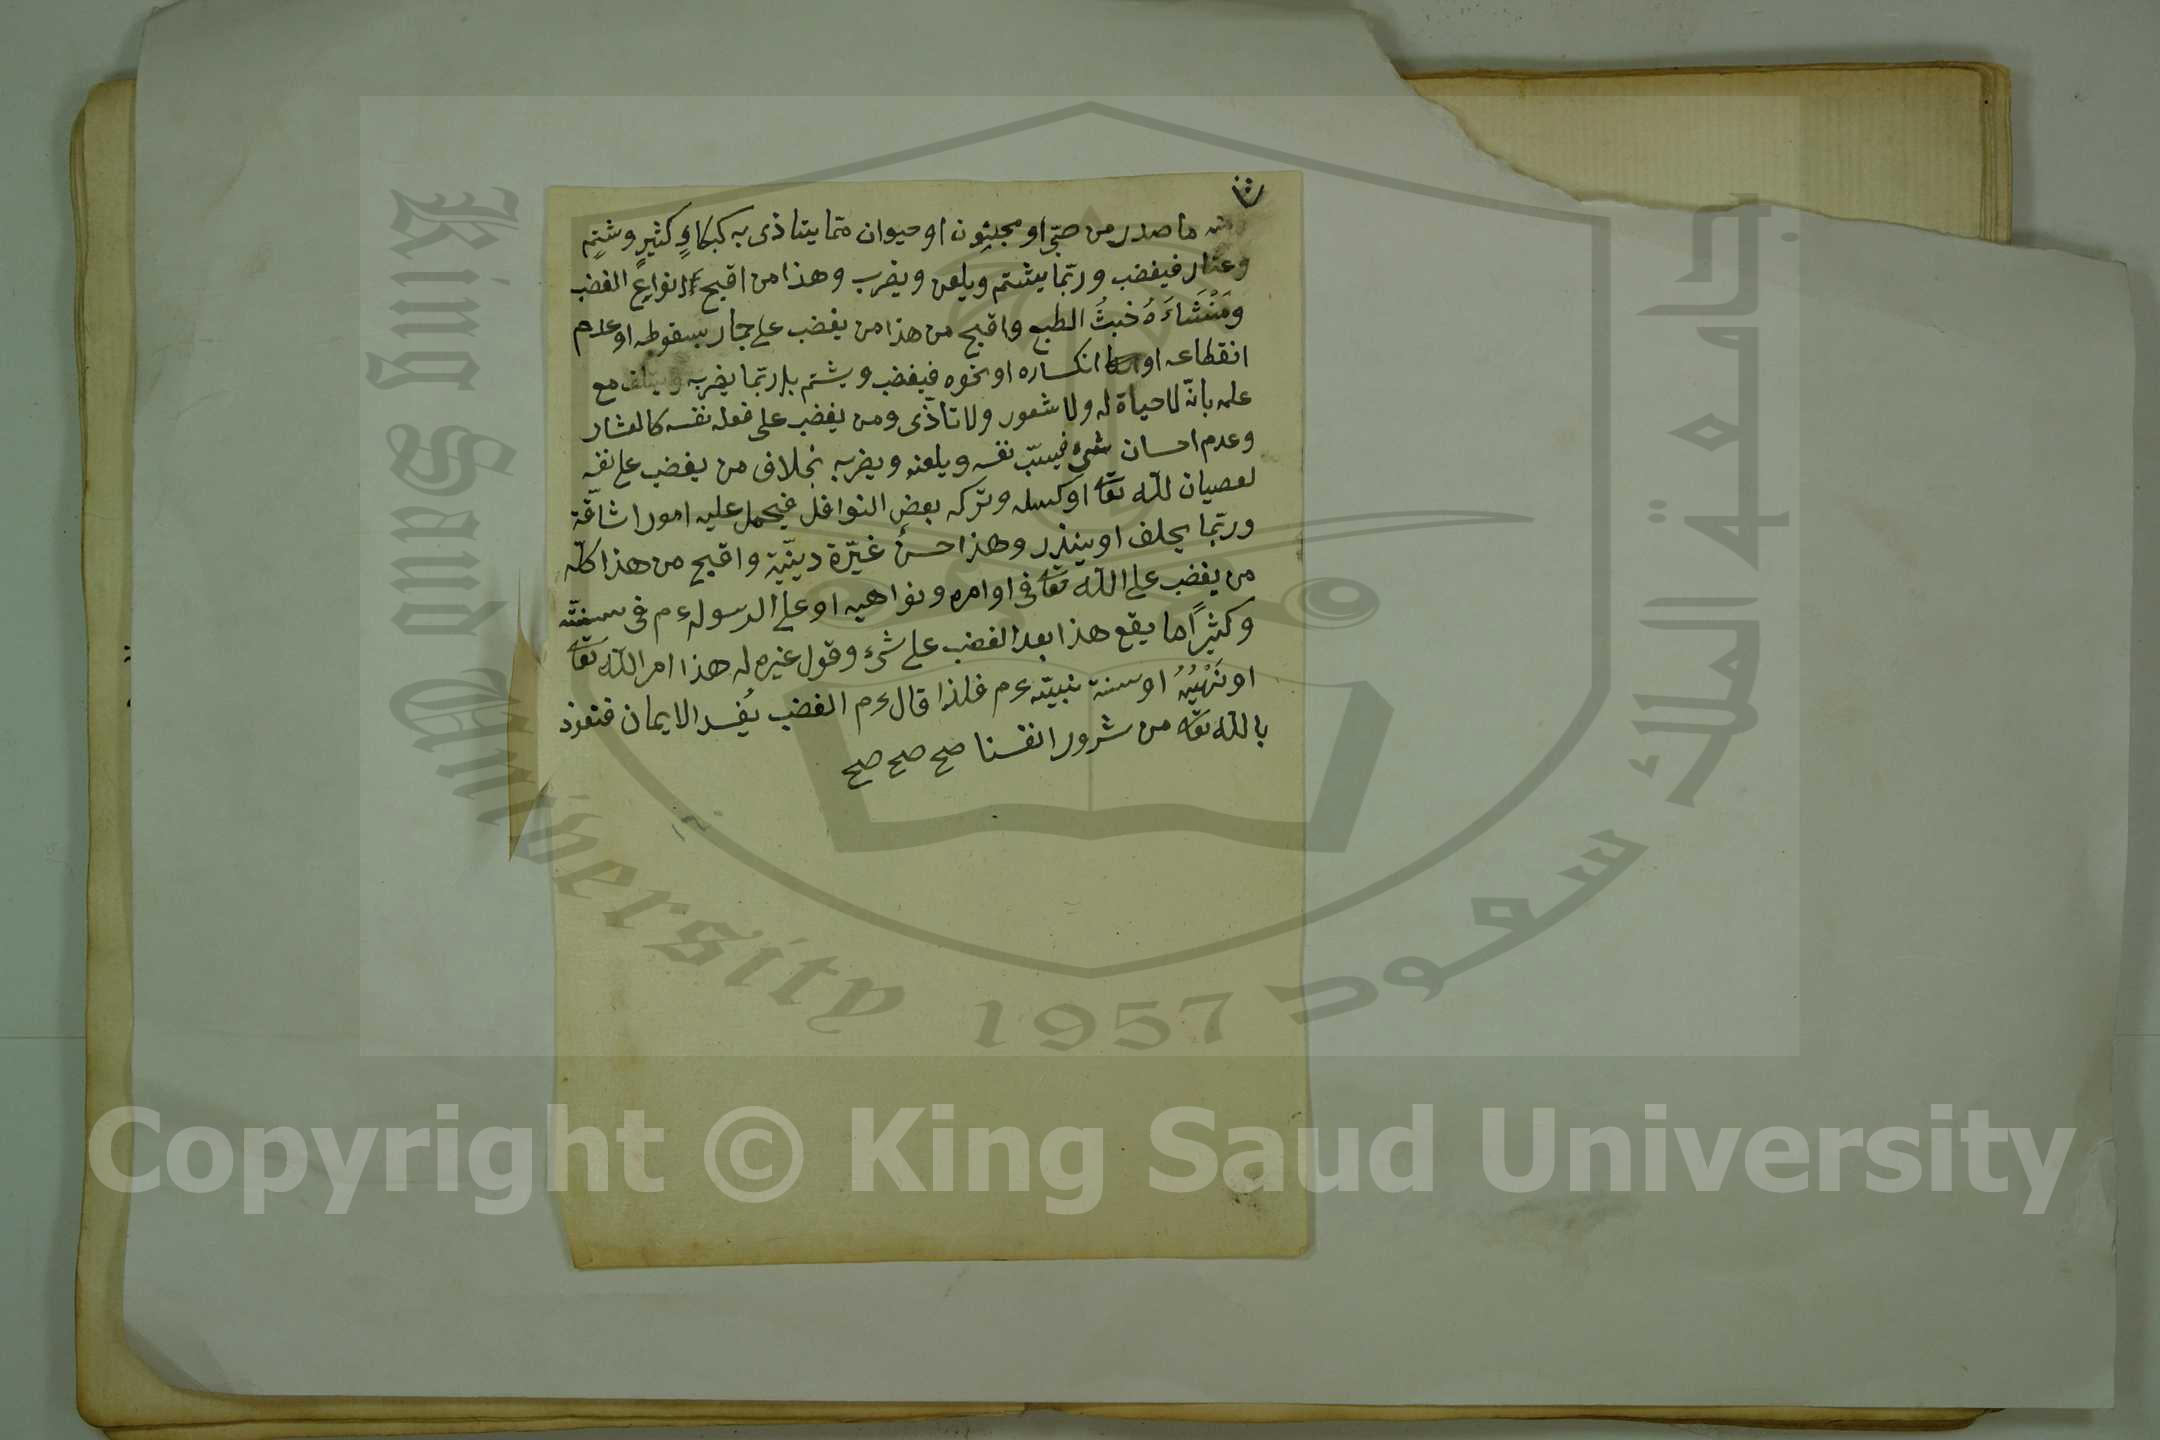 ومنه ما صدر من صبّي او مجنون او حيوان ممّا يتاذى به كبكاءٍ كثيرٍ وشتمٍ
وعثار فيغضب وربّما يشتم ويلعن ويضرب وهذا من اقبح انواع الغضب
ومَنْشَاءَهُ خبثُ الطبع واقبح من هذا من يغضب على جماد بسقوطه او عدم
انقطاعه او انكساره او نحوه فيغضب ويشتم بل ربّما يضربه ويتلف مع
علمه بانّه لا حياة له ولا شعور ولا تاذّى ومن يغضب على فعله نفسه كالعثار
وعدم احسان شئ فيسبّ نفسه ويلعنه ويضربه بخلاف من يغضب على نفسه
لعصيان لله تعا او كسله وتركه بعض النوافل فيحمل عليه امورا شاقّة
وربّما يحلف او ينذر وهذا حسنٌ غيّرة دينيّة واقبح من هذا كلّه
من يغضب على الله تعا فى اوامره ونواهيه او على الرسول عم فى سنته
وكثيرًا ما يقع هذا بعد الغضب على شئ وقول غيره له هذا امر الله تعا
او نَهْيُهُ او سنة نبيّه عم فلذا قال عم الغضب يُفسد الايمان فنعوذ
بالله تعا من شرور انفسنا صح صح صح
King Saud University
1957
جامعة الملك سعود
Copyright © King Saud University